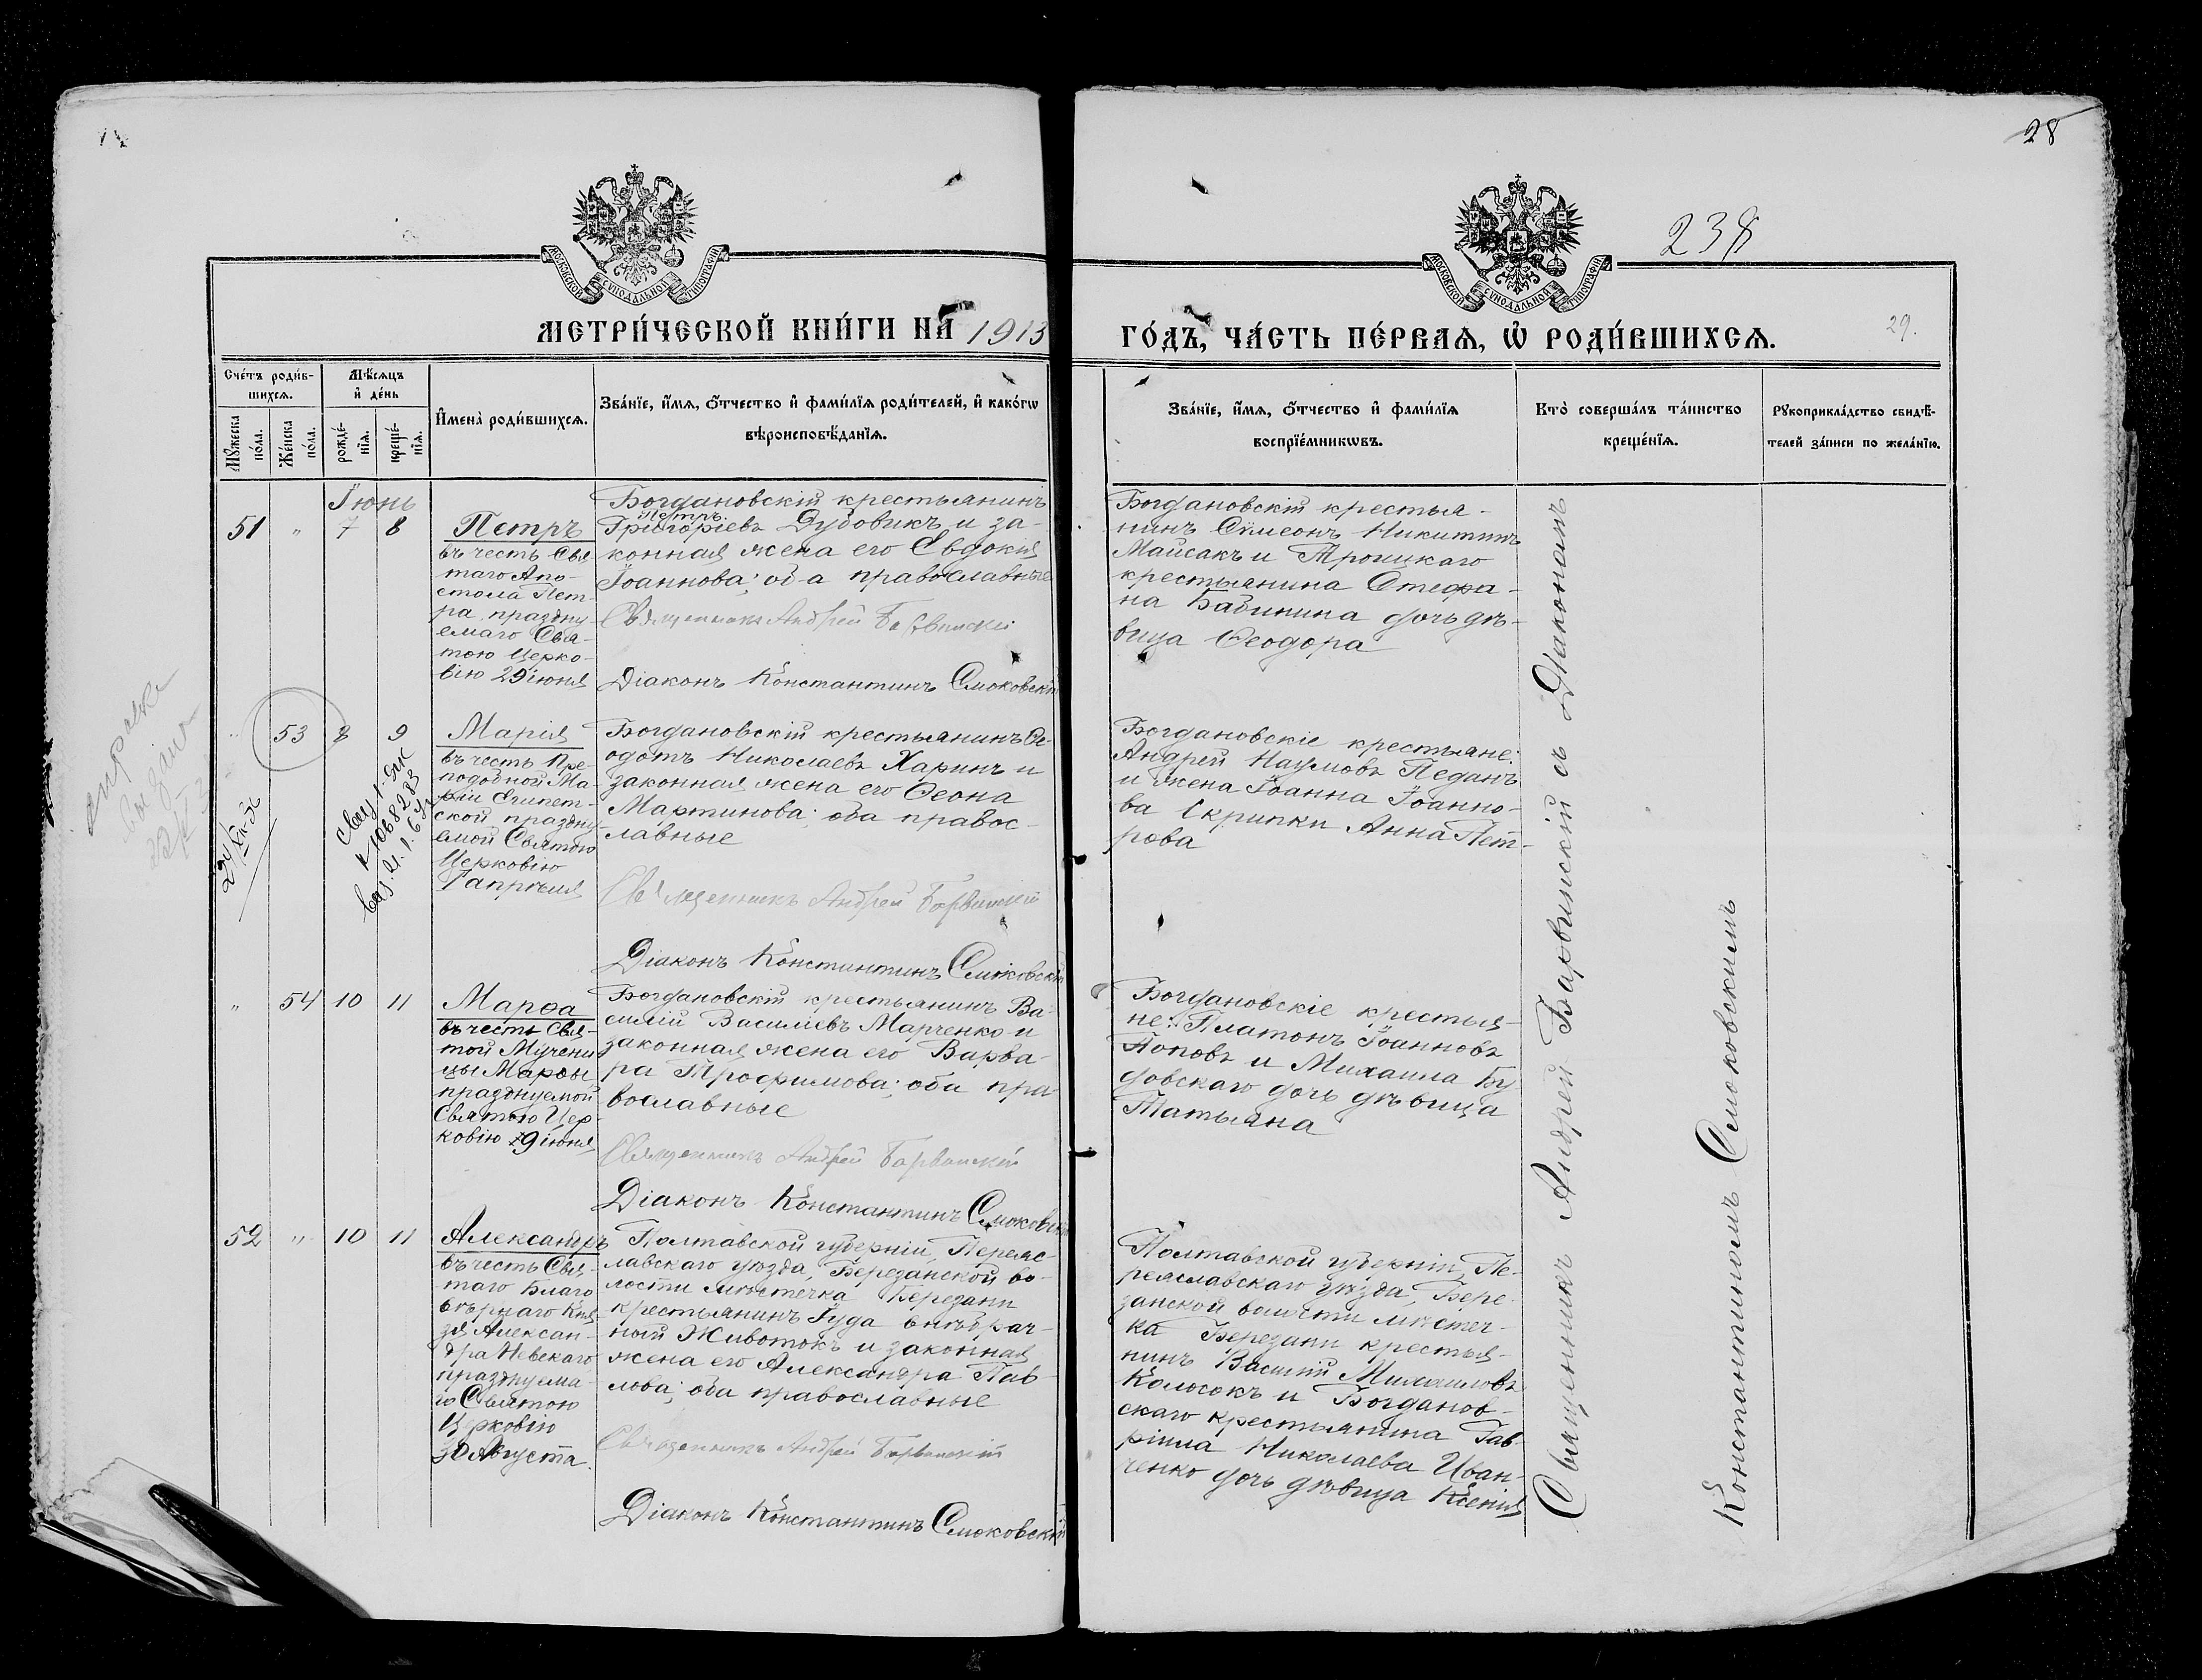 28
238
МОСКОВСКОЙ СѴНОДАЛЬНОЙ ТИПОГРАФІИ
МОСКОВСКОЙ СѴНОДАЛЬНОЙ ТИПОГРАФІИ
МЕТРИ́ЧЕСКОЙ КНИ́ГИ НА 1913
ГО́ДЪ, ЧА́СТЬ ПЕ́РВАѦ, Ѿ РОДИ́ВШИХСѦ.
29.
Сче́тъ роди́в-
шихсѧ.
Мꙋ́жеска
по́ла.
Же́нска
по́ла.
Мѣ́сѧцъ
и҆ де́нь
рожде́-
нїѧ.
креще́-
нїѧ.
И҆мена̀ роди́вшихсѧ.
Зва́нїе, и҆́мѧ, ѻ҆́тчество и҆ фами́лїѧ роди́телей, и҆ како́гѡ
вѣроисповѣ́данїѧ.
Зва́нїе, и҆́мѧ, ѻ҆́тчество и҆ фами́лїѧ
воспрїе́мникѡвъ.
Кто̀ соверша́лъ та́инство
креще́нїѧ.
Рꙋкоприкла́дство свидѣ́-
телей за́писи по жела́нїю.
Іюнь
51 " 7 8
Петръ
въ честь Свя
таго Апо-
стола Пет-
ра, праздну
емаго Свя-
тою Церко-
вію 29 іюня
Богдановскій крестьянинъ
Петръ
Григоріевъ Дубовикъ и за-
конная жена его Евдокія
Іоаннова; оба православные
Священникъ Андрей Барвинскій
Діаконъ Константинъ Смоковскій
Богдановскій крестья-
нинъ Симеонъ Никитинъ
Майсакъ и Троицкаго
крестьянина Стефа-
на Бабинина дочь дѣ-
вица Ѳеодора
" 53 8 9
Марія
въ честь Пре-
подобной Ма-
ріи Египет-
ской праздну
емой Святою
Церковію
1 апрѣля
Богдановскій крестьянинъ Ѳе-
одотъ Николаевъ Харинъ и
законная жена его Ѳеона
Мартинова; оба правос-
лавные
Священникъ Андрей Барвинскій
Діаконъ Константинъ Смоковскій
Богдановскіе крестьяне:
Андрей Наумовъ Педанъ
и жена Іоанна Іоанно-
ва Скрипки Анна Пет-
рова
" 54 10 11
Марѳа
въ честь Свя-
той Мучени
цы Марѳы
празднуемой
Святою Цер-
ковію 9 іюня
Богдановскій крестьянинъ Ва-
силій Василіевъ Марченко и
законная жена его Варва-
ра Трофимова; оба пра-
вославные
Священникъ Андрей Барвинскій
Діаконъ Константинъ Смоковскій
Богдановскіе крестья-
не: Платонъ Іоанновъ
Поповъ и Михаила Бу
довскаго дочь дѣвица
Татьяна
52 " 10 11
Александръ
въ честь Свя-
таго Благо
вѣрнаго Кня
зя Алексан-
дра Невскаго
празднуема-
го Святою
Церковію
30 Августа.
Полтавской губерніи, Переяс-
лавскаго уѣзда, Березанской во-
лости мѣстечка Березани
крестьянинъ Іуда внѣбрач-
ный Животокъ и законная
жена его Александра Пав-
лова; оба православные
Священникъ Андрей Барвинскій
Діаконъ Константинъ Смоковскій
Полтавской губерніи, Пе-
реяславскаго уѣзда, Бере-
занской волости мѣстеч-
ка Березани крестья-
нинъ Василій Михаиловъ
Колосокъ и Богданов-
скаго крестьянина Гав-
ріила Николаева Иван-
ченко дочь дѣвица Ксенія
Священникъ Андрей Барвинскій съ Діакономъ
Константиномъ Смоковскимъ